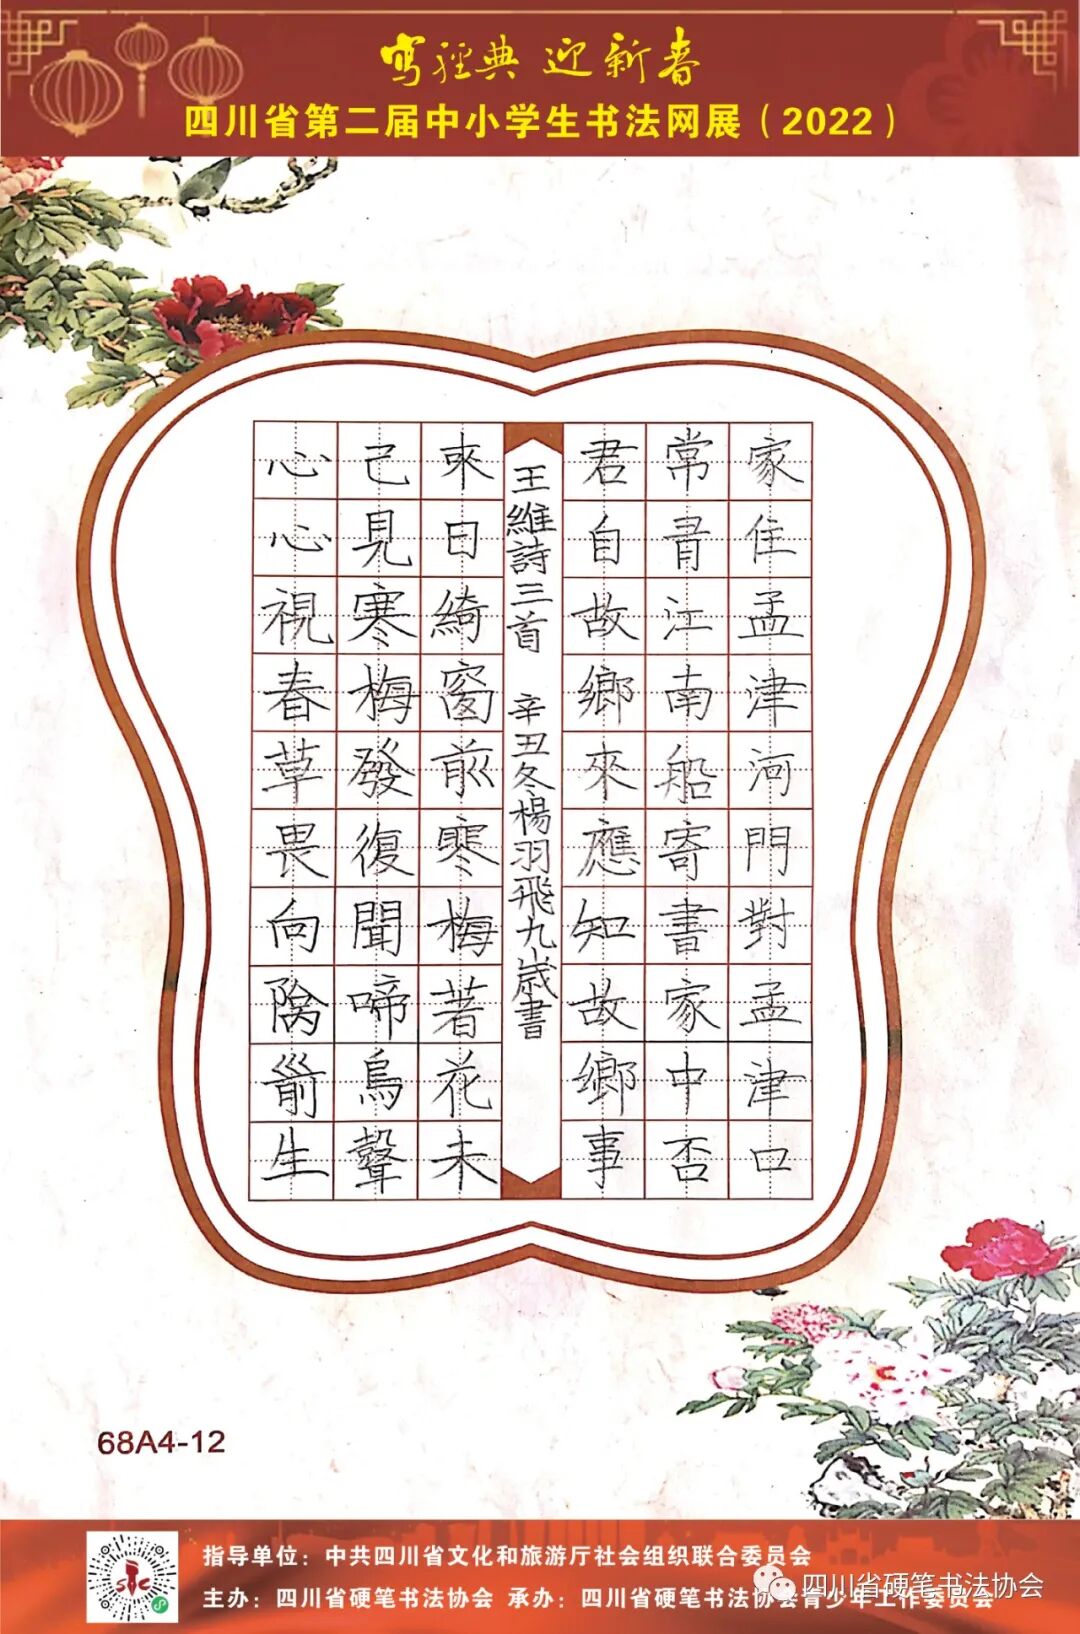 写經典 迎新春
四川省第二届中小学生书法网展（2022）
家住孟津河門對孟津口
常有江南船寄書家中否
君自故鄉來應知故鄉事
王維詩三首 辛丑冬楊羽飛九歲書
來日綺窗前寒梅著花未
己見寒梅發復聞啼鳥聲
心心視春草畏向階前生
68A4-12
指导单位：中共四川省文化和旅游厅社会组织联合委员会
主办：四川省硬笔书法协会 承办：四川省硬笔书法协会青少年工作委员会
四川省硬笔书法协会